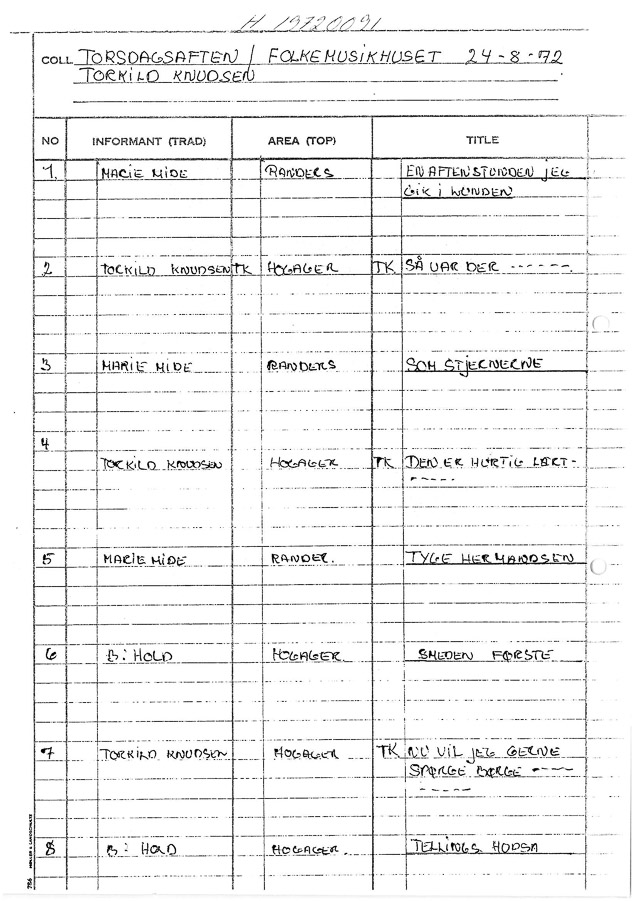 H 19720091
COLL TORSDAGSAFTEN / FOLKEMUSIKHUSET 24-8-72
TORKILD KNUDSEN
NO INFORMANT (TRAD) AREA (TOP) TITLE
1. MARIE MIDE RANDERS EN AFTENSTUNDEN JEG
GIK I LUNDEN
2 TORKILD KNUDSEN TK HOGAGER TK SÅ VAR DER ------.
3 MARIE MIDE RANDERS SOM STJERNERNE
4
TORKILD KNUDSEN HOGAGER TK DEN ER HURTIG LÆRT-
-----
5 MARIE MIDE RANDER. TYGE HERMANDSEN
6 B: HOLD HOGAGER SMEDEN FØRSTE
7 TORKILD KNUDSEN HOGAGER TK NU VIL JEG GERNE
SPØRGE BØRGE ----
-----
8 B: HOLD HOGAGER. TELLINGS HOPSA
786